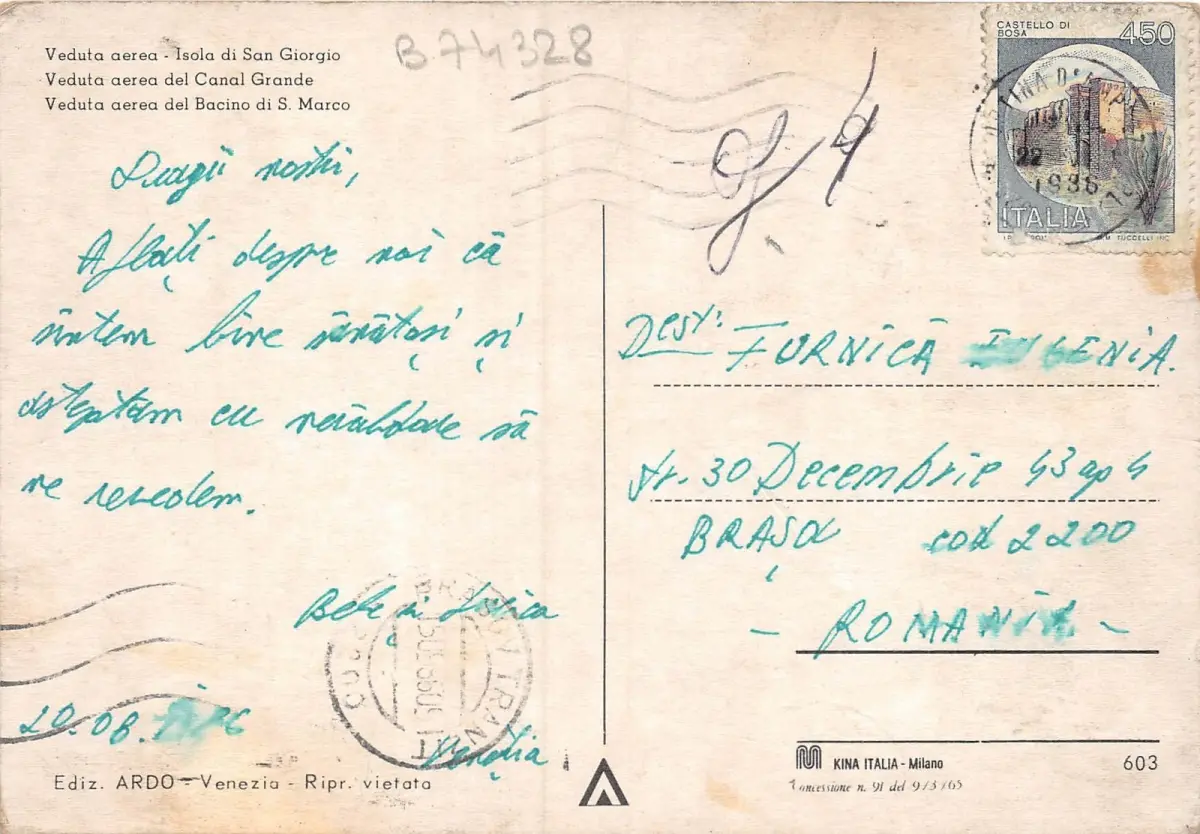 Veduta aerea - Isola di San Giorgio
Veduta aerea del Canal Grande
Veduta aerea del Bacino di S. Marco
B.74328
CASTELLO DI
BOSA
450
22
1986
ITALIA
Dragii noștri,
Aflați despre noi că
sîntem bine sănătoși și
așteptăm cu nerăbdare să
ne revedem.
Bebe și
20.08.
Veneția
BRAȘOV TRANZIT
Dest: FURNICĂ EUGENIA.
str. 30 Decembrie 43 ap 4
BRAȘOV cod 2200
- ROMANIA -
Ediz. ARDO - Venezia - Ripr. vietata
KINA ITALIA - Milano
603
Concessione n. 91 del 9/3/65